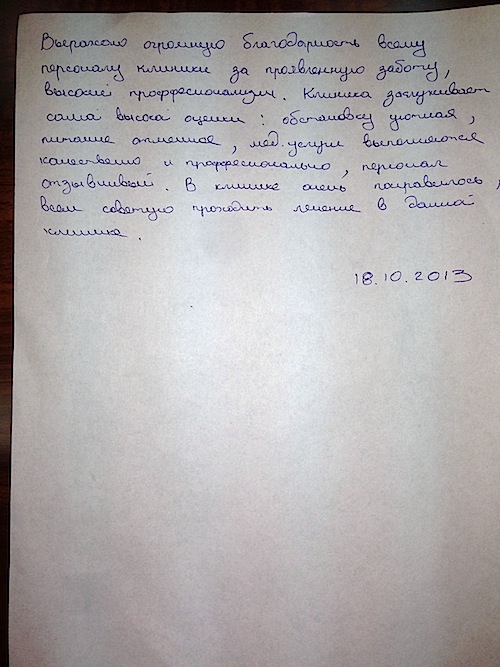 Выражаю огромную благодарность всему
персоналу клиники за проявленную заботу,
высокий проффесионализм. Клиника заслуживает
самой высокой оценки : обстановку уютная,
питание отменное, мед. услуги выполняются
качественно и проффесионально, персонал
отзывчивый. В клинике очень понравилось,
всем советую проходить лечение в данной
клинике.
18.10.2013